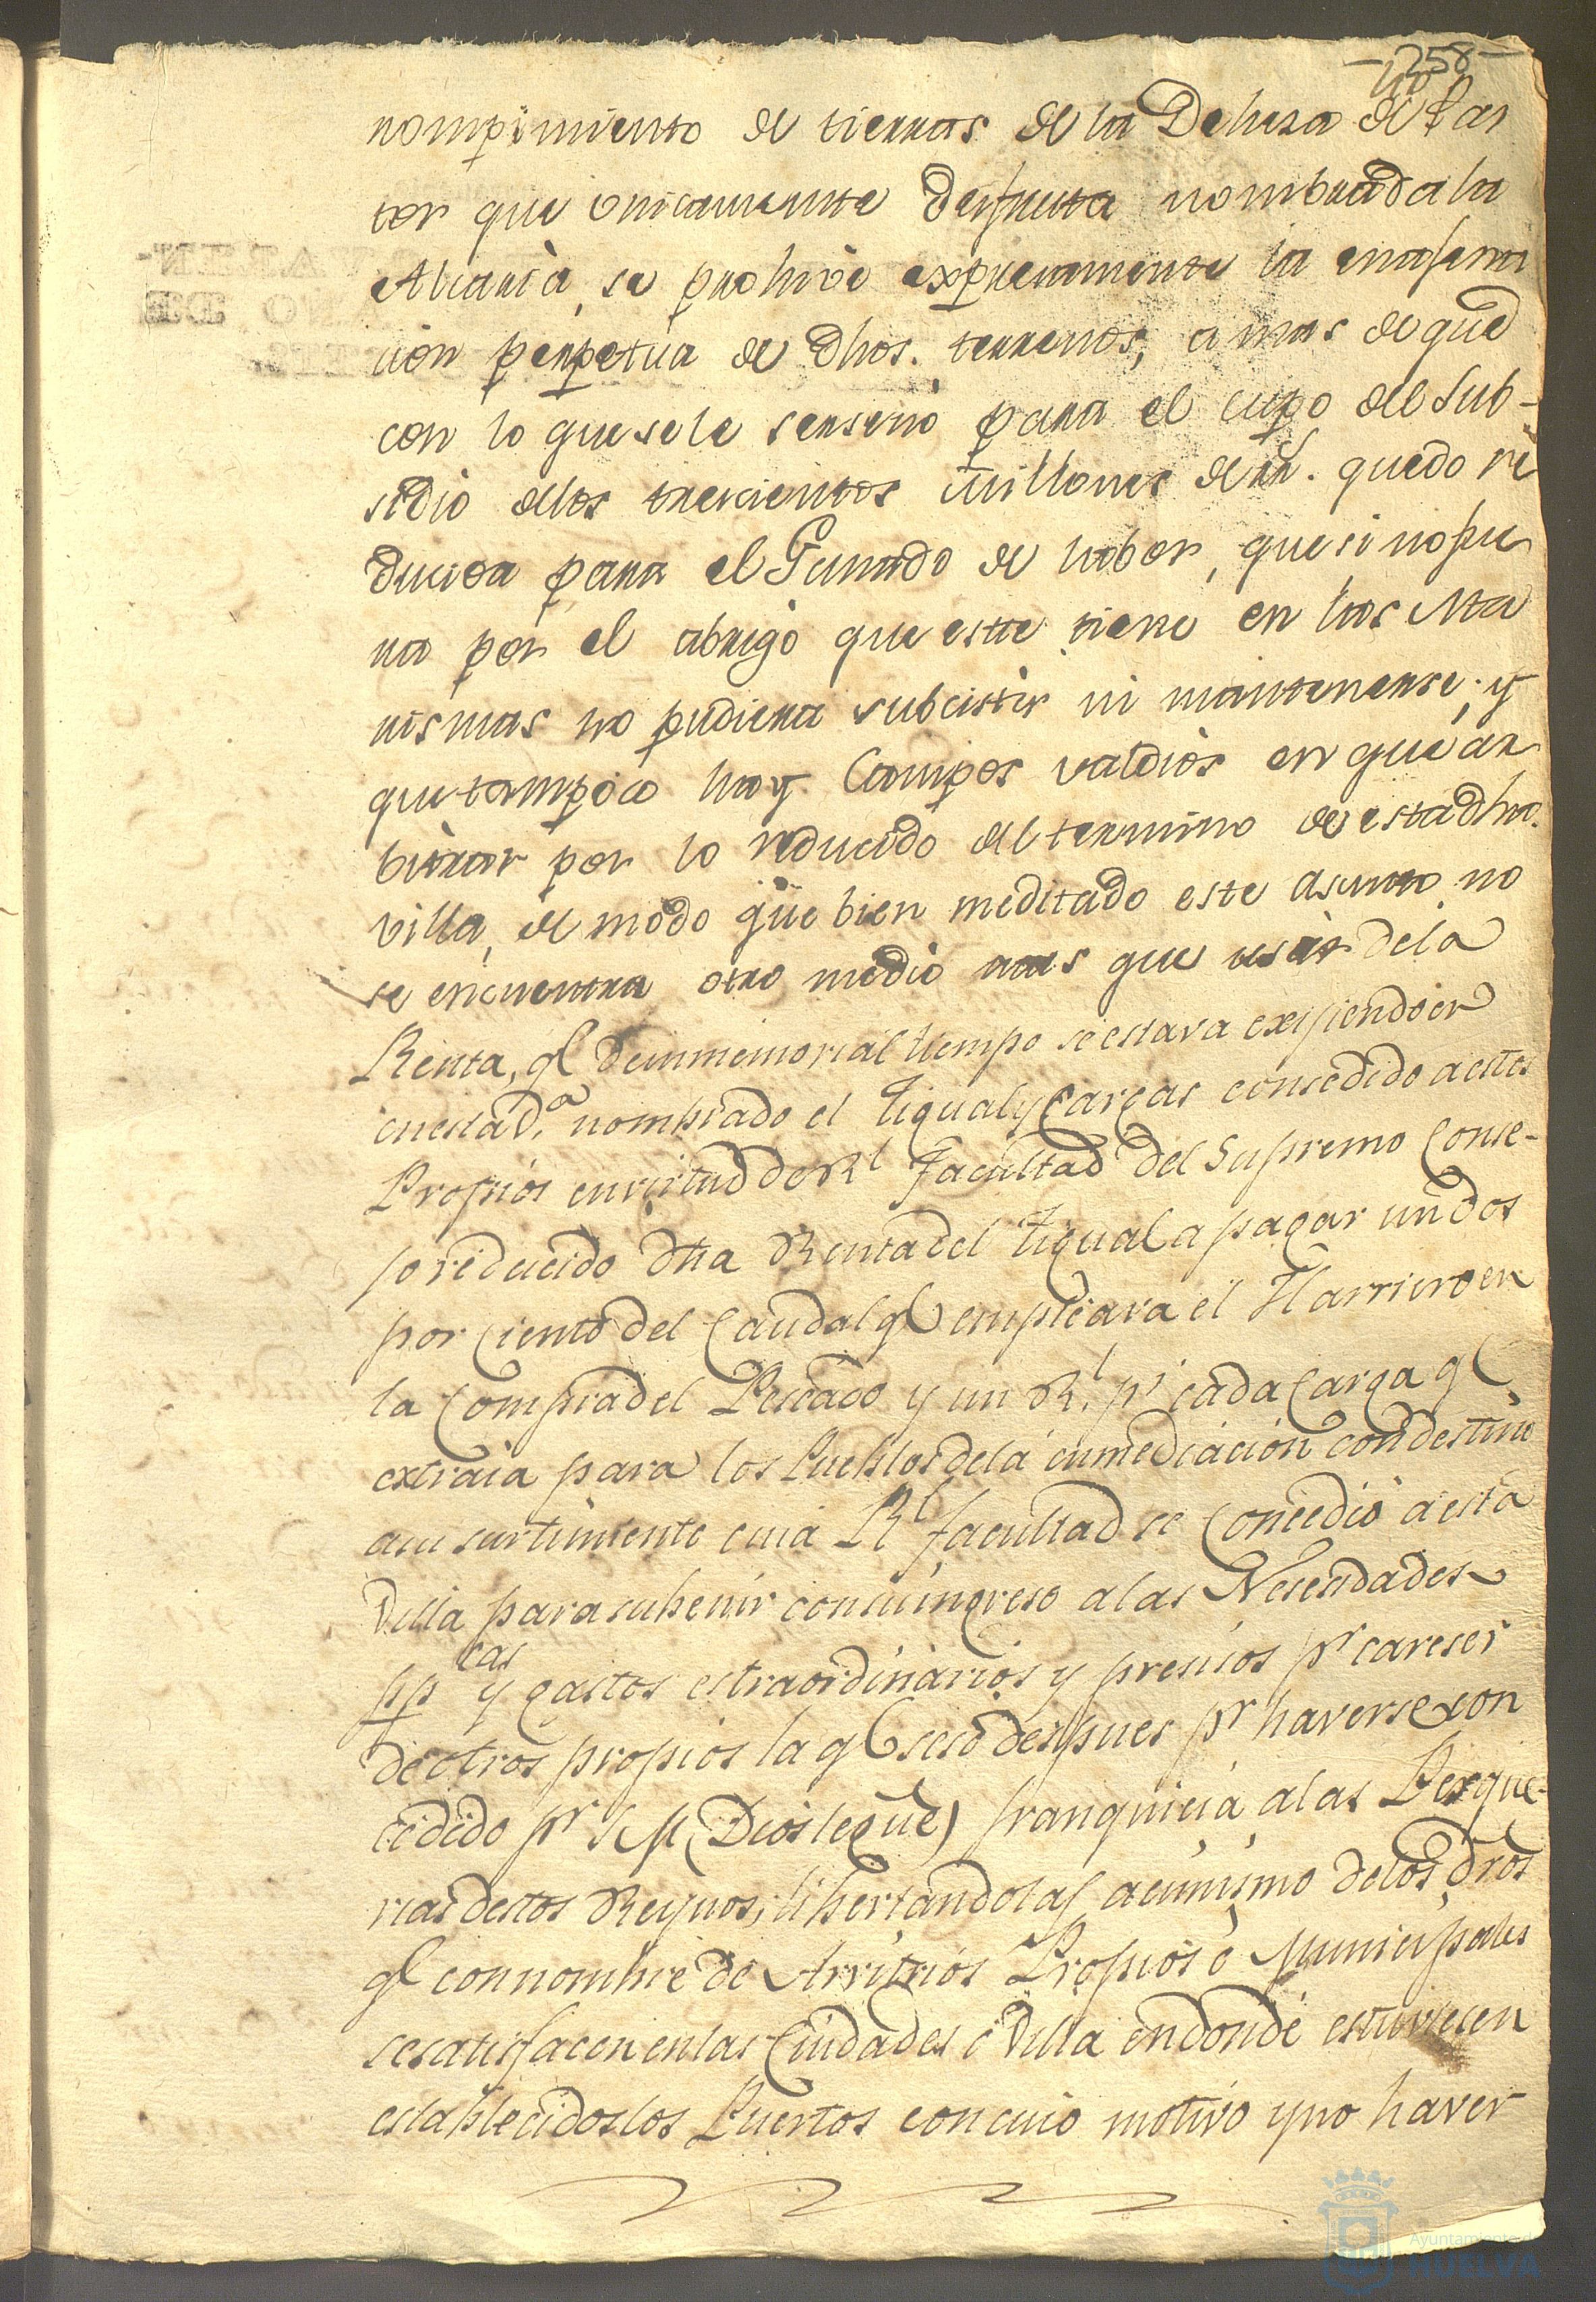 -258-
rompimiento de tierras de la Dehesa de Pas
tos que unicamente desfruta nombrada la
Alcaria, se prohive expresamente la enagena
cion perpetua de dhos. terrenos, a mas de que
con lo que se le senseno para el cupo del Sub-
sidio de los trescientos millones de rs. quedo re
ducida para el Ganado de labor, que si no fue
ra por el abrigo que este tiene en las Ma
rismas no pudiera subcistir ni mantenerse; y
que tampoco hay Campos valdios en que ar
bitrar por lo reducido del termino de esta dha.
villa, de modo que bien meditado este asunto no
se encuentra otro medio mas que usar de la
Renta, ql de immemorial tiempo se estava exijiendo en
en esta Va. nombrado el Tigual y Cargas consedido a estos
Propios en virtud de Rl facultad del Supremo Conse-
jo reducido dha Renta del Tigual a pagar un dos
por Ciento del Caudal ql empleava el Harriero en
la Compra del Pescado y un Rl. pr cada Carga ql
extraia para los Pueblos de la inmediacion con destino
a su surtimiento cuia Rl facultad se Concedio a esta
Villa para subenir con su ingreso a las Nesesidades
ppcas y gastos estraordinarios y presisos pr careser
de otros propios la ql seso despues pr haverse con
cedido pr S M (Dios le gue) franquicia a las Pesque-
rias destos Reynos, libertandolas acimismo de los dros
ql con nombre de Arvitrios Propios o Municipales
se satisfacen en las Ciudades o Villa en donde estuviesen
establecidos los Puertos con cuio motivo y no haver
Ayuntamiento de
HUELVA